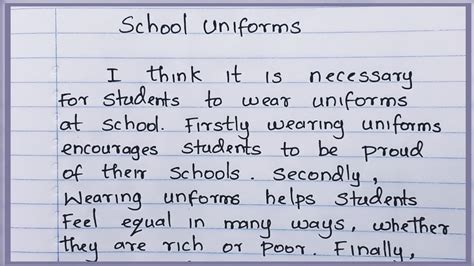 School Uniforms
I think it is necessary
For students to wear uniforms
at school. Firstly wearing uniforms
encourages students to be proud
of their schools. Secondly,
Wearing unforms helps students
Feel equal in many ways, whether
they are rich or poor. Finally,